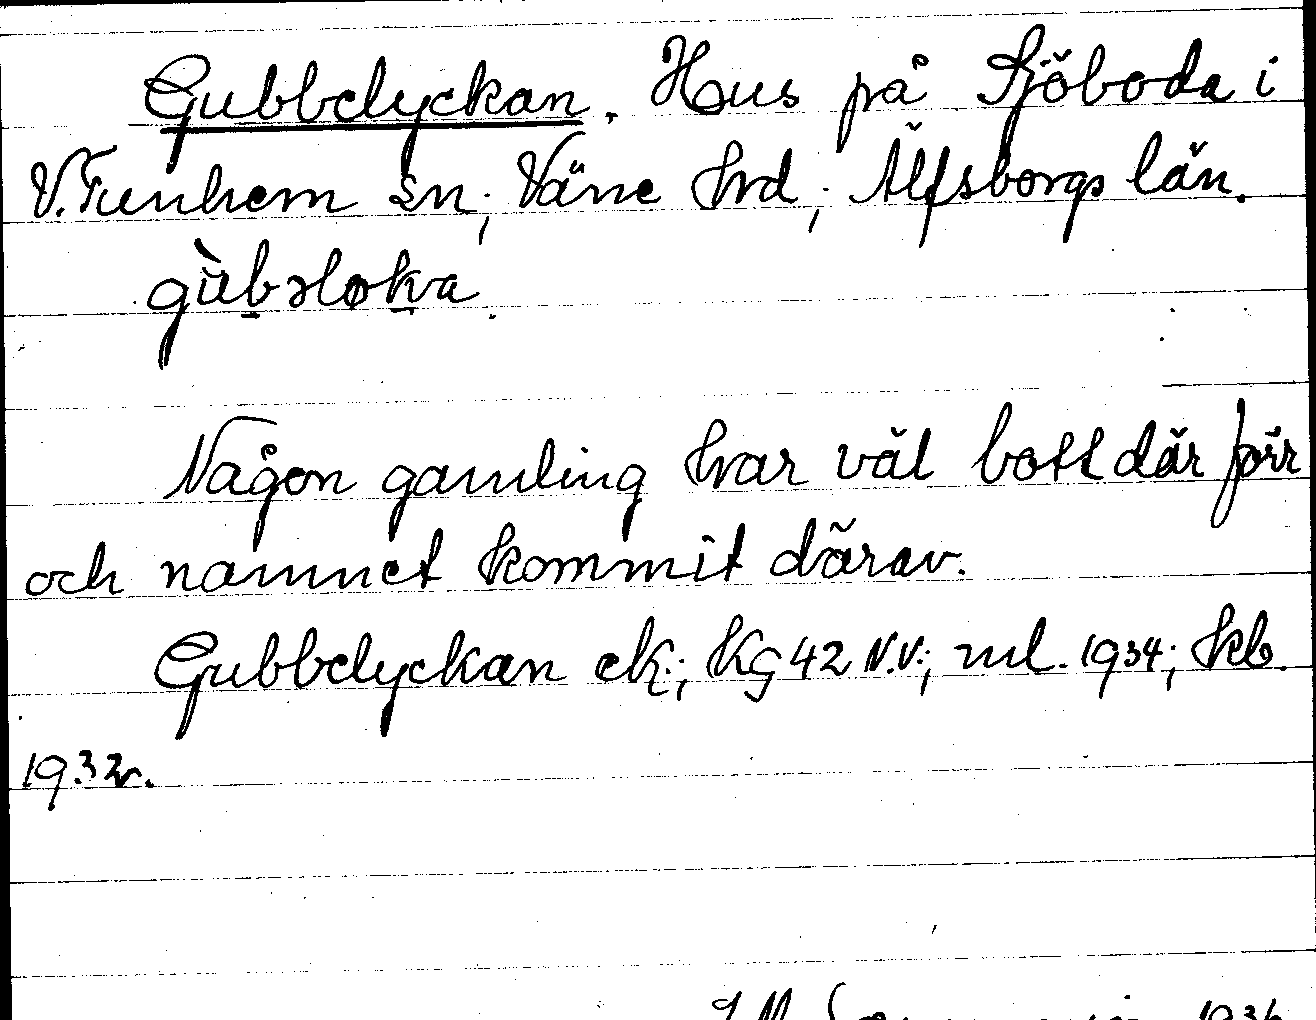 Gubbelyckan. Hus på Sjöboda i
V.Tunhem sn; Väne hrd; Älfsborgs län.
gùbəloka
Någon gamling har väl bott där förr
och namnet kommit därav.
Gubbelyckan ek.; KG 42 N.V.; ml. 1934; kb.
1932.
1936